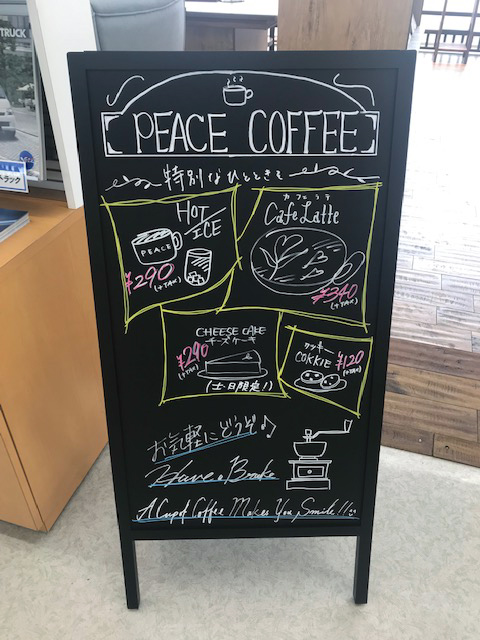 TRUCK
トラック
PEACE COFFEE
特別なひとときを
HOT/ICE
PEACE
¥290
(+TAX)
カフェラテ
Cafe Latte
¥340
(+TAX)
CHEESE CAKE
チーズケーキ
¥290
(+TAX)
(土・日限定!)
クッキー
COKKIE
¥120
(+TAX)
お気軽にどうぞ♪
Have a Brake
A Cup of Coffee Makes You Smile!!